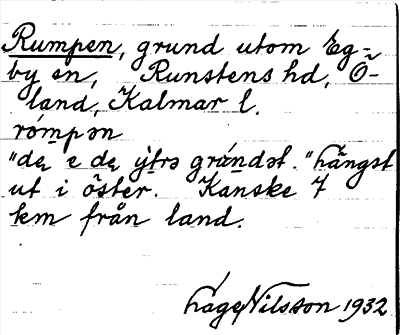 Rumpen, grund utom Eg-
by sn, Runstens hd, Ö-
land, Kalmar l.
rómpən
"de e de ỳtrə grúndət." Längst
ut i öster. Kanske 7
km från land.
Nilsson 1932